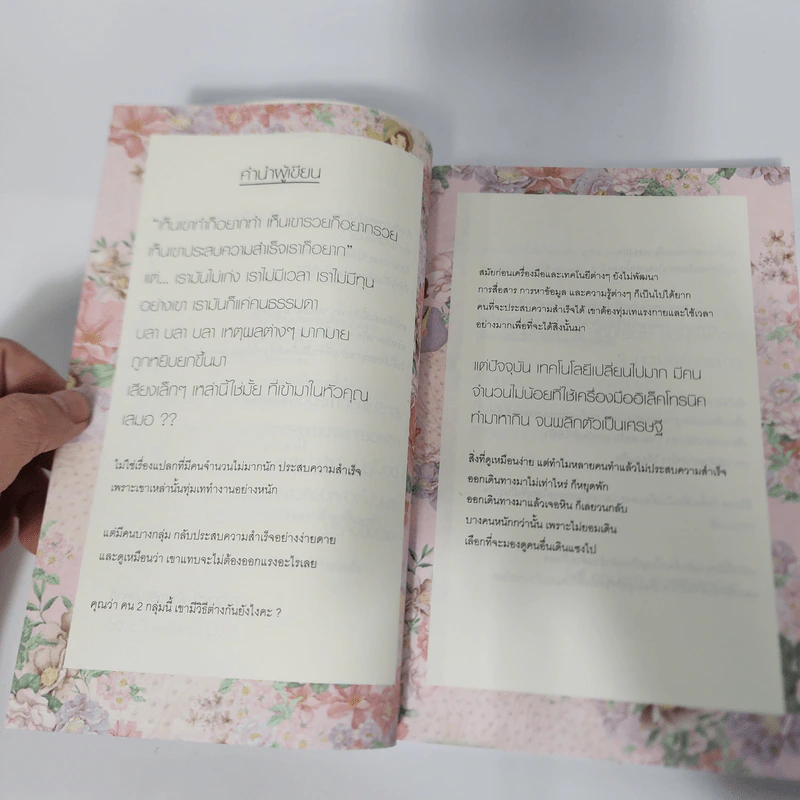 คำนำผู้เขียน
"เห็นเขาทำก็อยากทำ เห็นเขารวยก็อยากรวย
เห็นเขาประสบความสำเร็จเราก็อยาก"
แต่... เรามันไม่เก่ง เราไม่มีเวลา เราไม่มีทุน
อย่างเขา เรามันก็แค่คนธรรมดา
บลา บลา บลา เหตุผลต่างๆ มากมาย
ถูกหยิบยกขึ้นมา
เสียงเล็กๆ เหล่านี้ใช่มั้ย ที่เข้ามาในหัวคุณ
เสมอ ??
ไม่ใช่เรื่องแปลกที่มีคนจำนวนไม่มากนัก ประสบความสำเร็จ
เพราะเขาเหล่านั้นทุ่มเททำงานอย่างหนัก
แต่มีคนบางกลุ่ม กลับประสบความสำเร็จอย่างง่ายดาย
และดูเหมือนว่า เขาแทบจะไม่ต้องออกแรงอะไรเลย
คุณว่า คน 2 กลุ่มนี้ เขามีวิธีต่างกันยังไงคะ ?
สมัยก่อนเครื่องมือและเทคโนยีต่างๆ ยังไม่พัฒนา
การสื่อสาร การหาข้อมูล และความรู้ต่างๆ ก็เป็นไปได้ยาก
คนที่จะประสบความสำเร็จได้ เขาต้องทุ่มเทแรงกายและใช้เวลา
อย่างมากเพื่อที่จะได้สิ่งนั้นมา
แต่ปัจจุบัน เทคโนโลยีเปลี่ยนไปมาก มีคน
จำนวนไม่น้อยที่ใช้เครื่องมืออิเล็คโทรนิค
ทำมาหากิน จนพลิกตัวเป็นเศรษฐี
สิ่งที่ดูเหมือนง่าย แต่ทำไมหลายคนทำแล้วไม่ประสบความสำเร็จ
ออกเดินทางมาไม่เท่าไหร่ ก็หยุดพัก
ออกเดินทางมาแล้วเจอหิน ก็เลยวนกลับ
บางคนหนักกว่านั้น เพราะไม่ยอมเดิน
เลือกที่จะมองดูคนอื่นเดินแซงไป